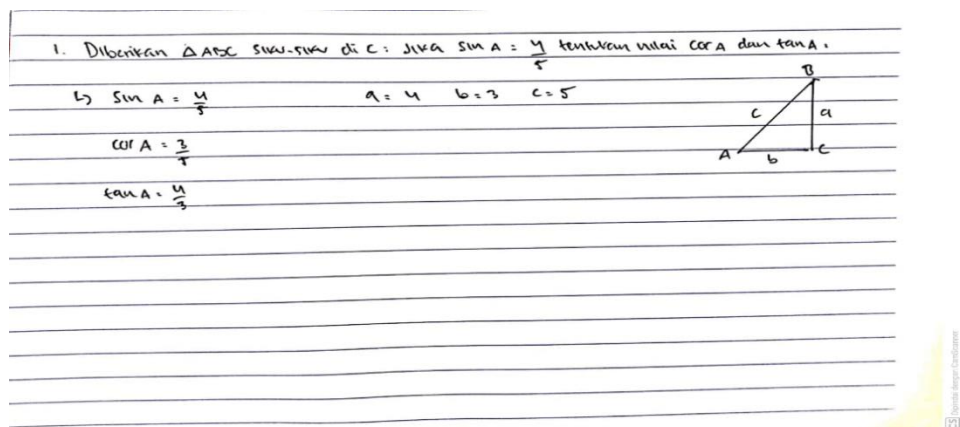 1. Diberikan △ ABC siku-siku di C. Jika sin A = 4/5 tentukan nilai cos A dan tan A.
↳ sin A = 4/5 a = 4 b = 3 c = 5
cos A = 3/5
tan A = 4/3
B
c a
A b C
CS Dipindai dengan CamScanner